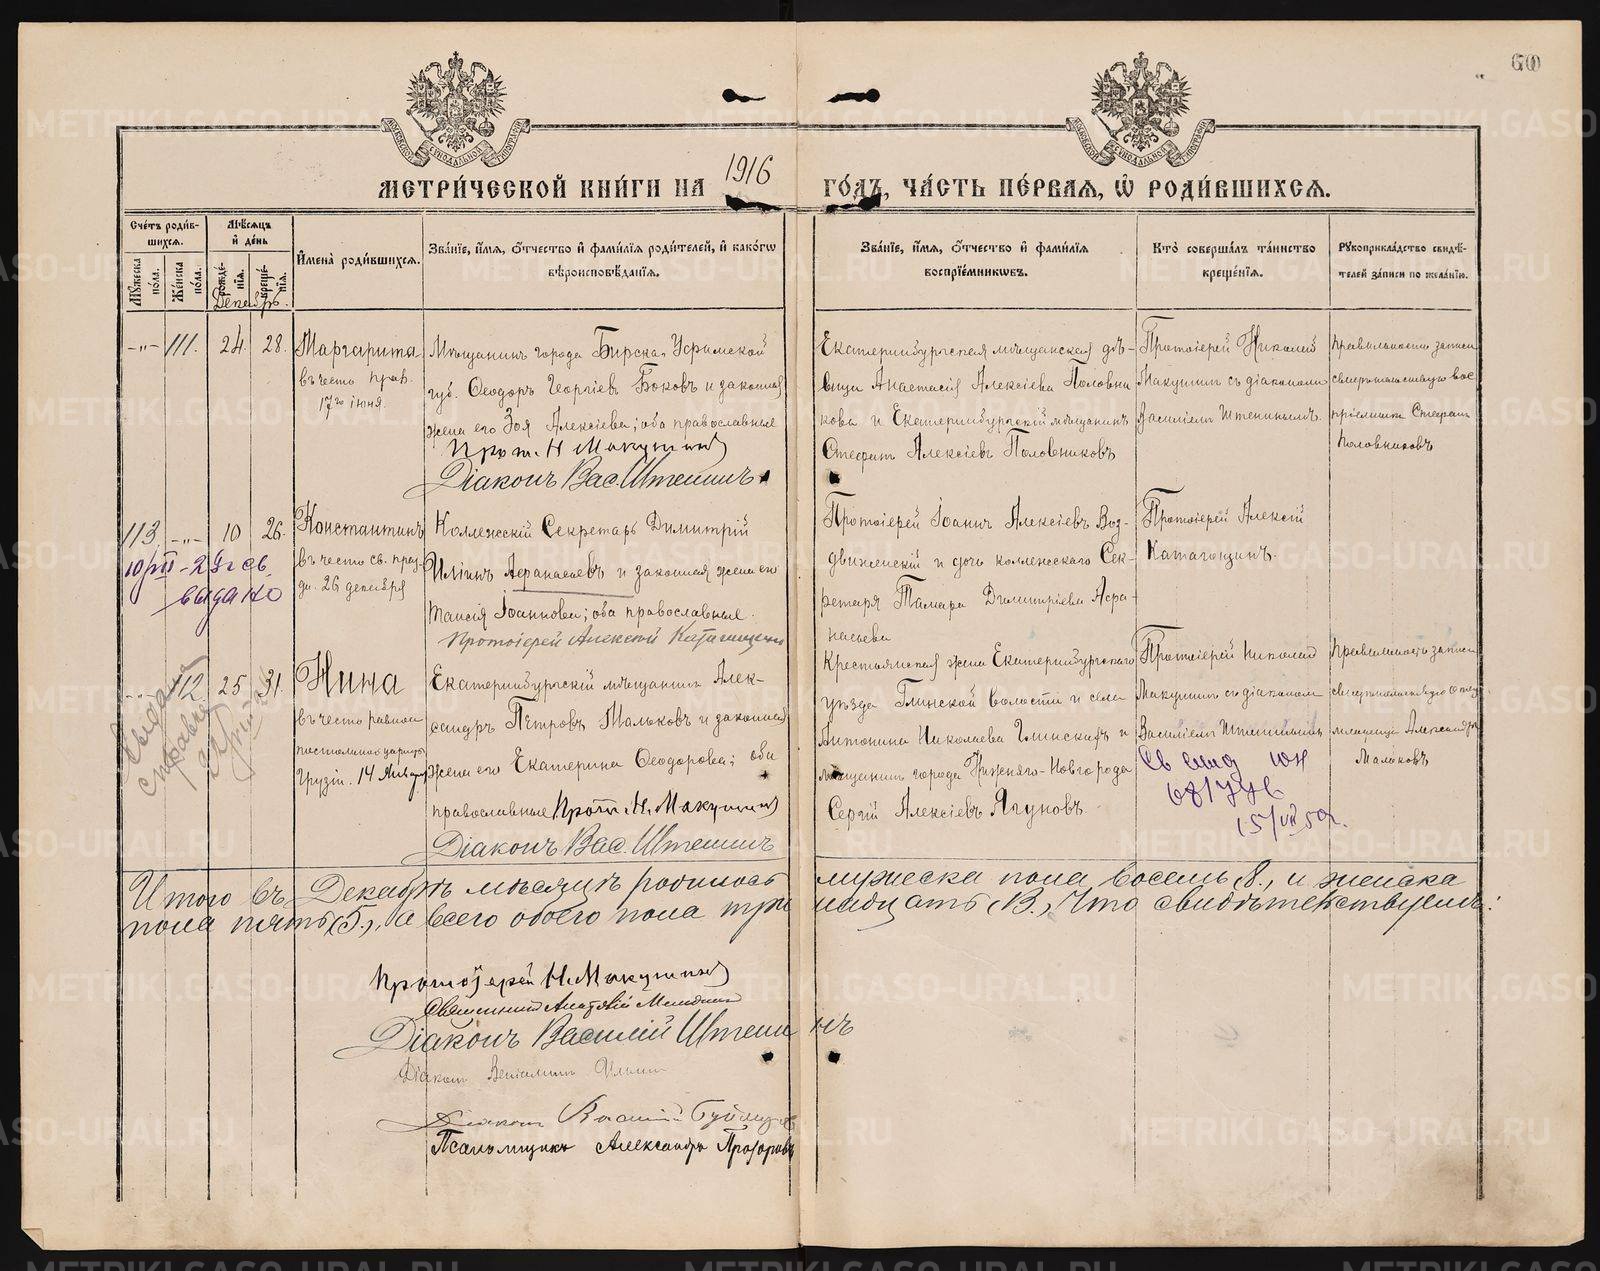 60
МЕТРИ́ЧЕСКОЙ КНИ́ГИ НА 1916 ГО́ДЪ, ЧА́СТЬ ПЕ́РВАѦ, Ѡ҆ РОДИ́ВШИХСѦ.
Сче́тъ роди́в-
шихсѧ.
Мꙋ́жеска по́ла.
Же́нска по́ла.
Мѣ́сѧцъ
и҆ де́нь
рожде́-
нїѧ.
креще́-
нїѧ.
Декабрь.
И҆мена̀ роди́вшихсѧ.
Зва́нїе, и҆́мѧ, ѻ҆́тчество и҆ фами́лїѧ роди́телей, и҆ како́гѡ
вѣроисповѣ́данїѧ.
Зва́нїе, и҆́мѧ, ѻ҆́тчество и҆ фами́лїѧ
воспрїе́мникѡвъ.
Кто̀ соверша́лъ та́инство
креще́нїѧ.
Рꙋкоприкла́дство свидѣ́-
телей за́писи по жела́нїю.
-"- 111. 24. 28.
Маргарита
въ честь прав.
17го іюня.
Мѣщанинъ города Бирска, Уфимской
губ. Ѳеодоръ Георгіевъ Боковъ и законная
жена его Зоя Алексіева; оба православные
Прот. Н Макушинъ
Діаконъ Вас. Штенинъ
Екатеринбургская мѣщанская дѣ-
вица Анастасія Алексіева Половни
кова и Екатеринбургскій мѣщанинъ
Стефанъ Алексіевъ Половниковъ
Протоіерей Николай
Макушинъ съ діакономъ
Василіемъ Штенинымъ.
Правильность записи
свидѣтельствую вос
пріемникъ Стефанъ
Половниковъ
113. -"- 10 26.
10/III - 24г св.
выдано
Константинъ
въ честь св. праз-
дн. 26 декабря
Коллежскій Секретарь Димитрій
Иліинъ Аѳанасьевъ и законная жена его
Таисія Іоаннова; оба православные.
Протоіерей Алексій Катагощинъ
Протоіерей Іоаннъ Алексіевъ Воз-
движенскій и дочь коллежскаго Сек-
ретаря Тамара Димитріева Аѳа-
насьева
Протоіерей Алексій
Катагощинъ.
112 25 31.
Выдана
справка
Нина
въ честь равноап
постольной царицы
Грузіи. 14 Января
Екатеринбургскій мѣщанинъ Алек-
сандръ Петровъ Мальковъ и законная
жена его Екатерина Ѳеодорова; оба
православные Прот. Н. Макушинъ
Діаконъ Вас. Штенинъ
Крестьянская жена Екатеринбургскаго
уѣзда Глинской волости и села
Антонина Николаева Глинскихъ и
мѣщанинъ города Нижняго-Новгорода
Сергій Алексіевъ Ягуновъ
Протоіерей Николай
Макушинъ съ діакономъ
Василіемъ Штенинымъ
Св выд ЮН
681776
15/VII 50г.
Правильность записи
свидѣтельствую отецъ
Александръ
Мальковъ
Итого въ Декабрѣ мѣсяцѣ родилось мужеска пола восемь, 8., и женска
пола пять, (5)., а всего обоего пола тринадцать, 13., Что свидѣтельствуемъ:
Протоіерей Н. Макушинъ
Діаконъ Василій Штенинъ
Діаконъ Веніаминъ Ильинъ
Діаконъ Василій
Псаломщикъ Александръ Прозоровъ